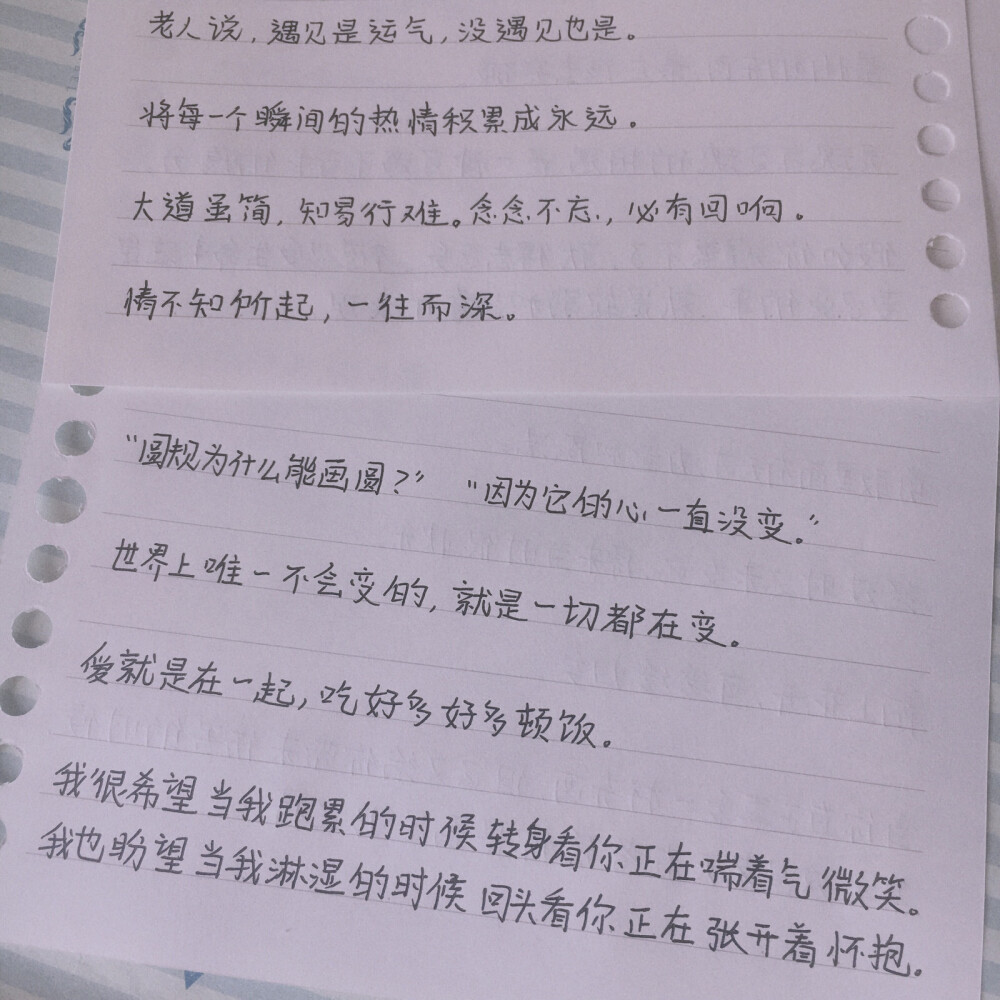 老人说,遇见是运气,没遇见也是。
将每一个瞬间的热情积累成永远。
大道虽简,知易行难。念念不忘,必有回响。
情不知所起,一往而深。
“圆规为什么能画圆?” “因为它的心一直没变。”
世界上唯一不会变的,就是一切都在变。
爱就是在一起,吃好多好多顿饭。
我很希望当我跑累的时候转身看你正在喘着气微笑。
我也盼望当我淋湿的时候回头看你正在张开着怀抱。